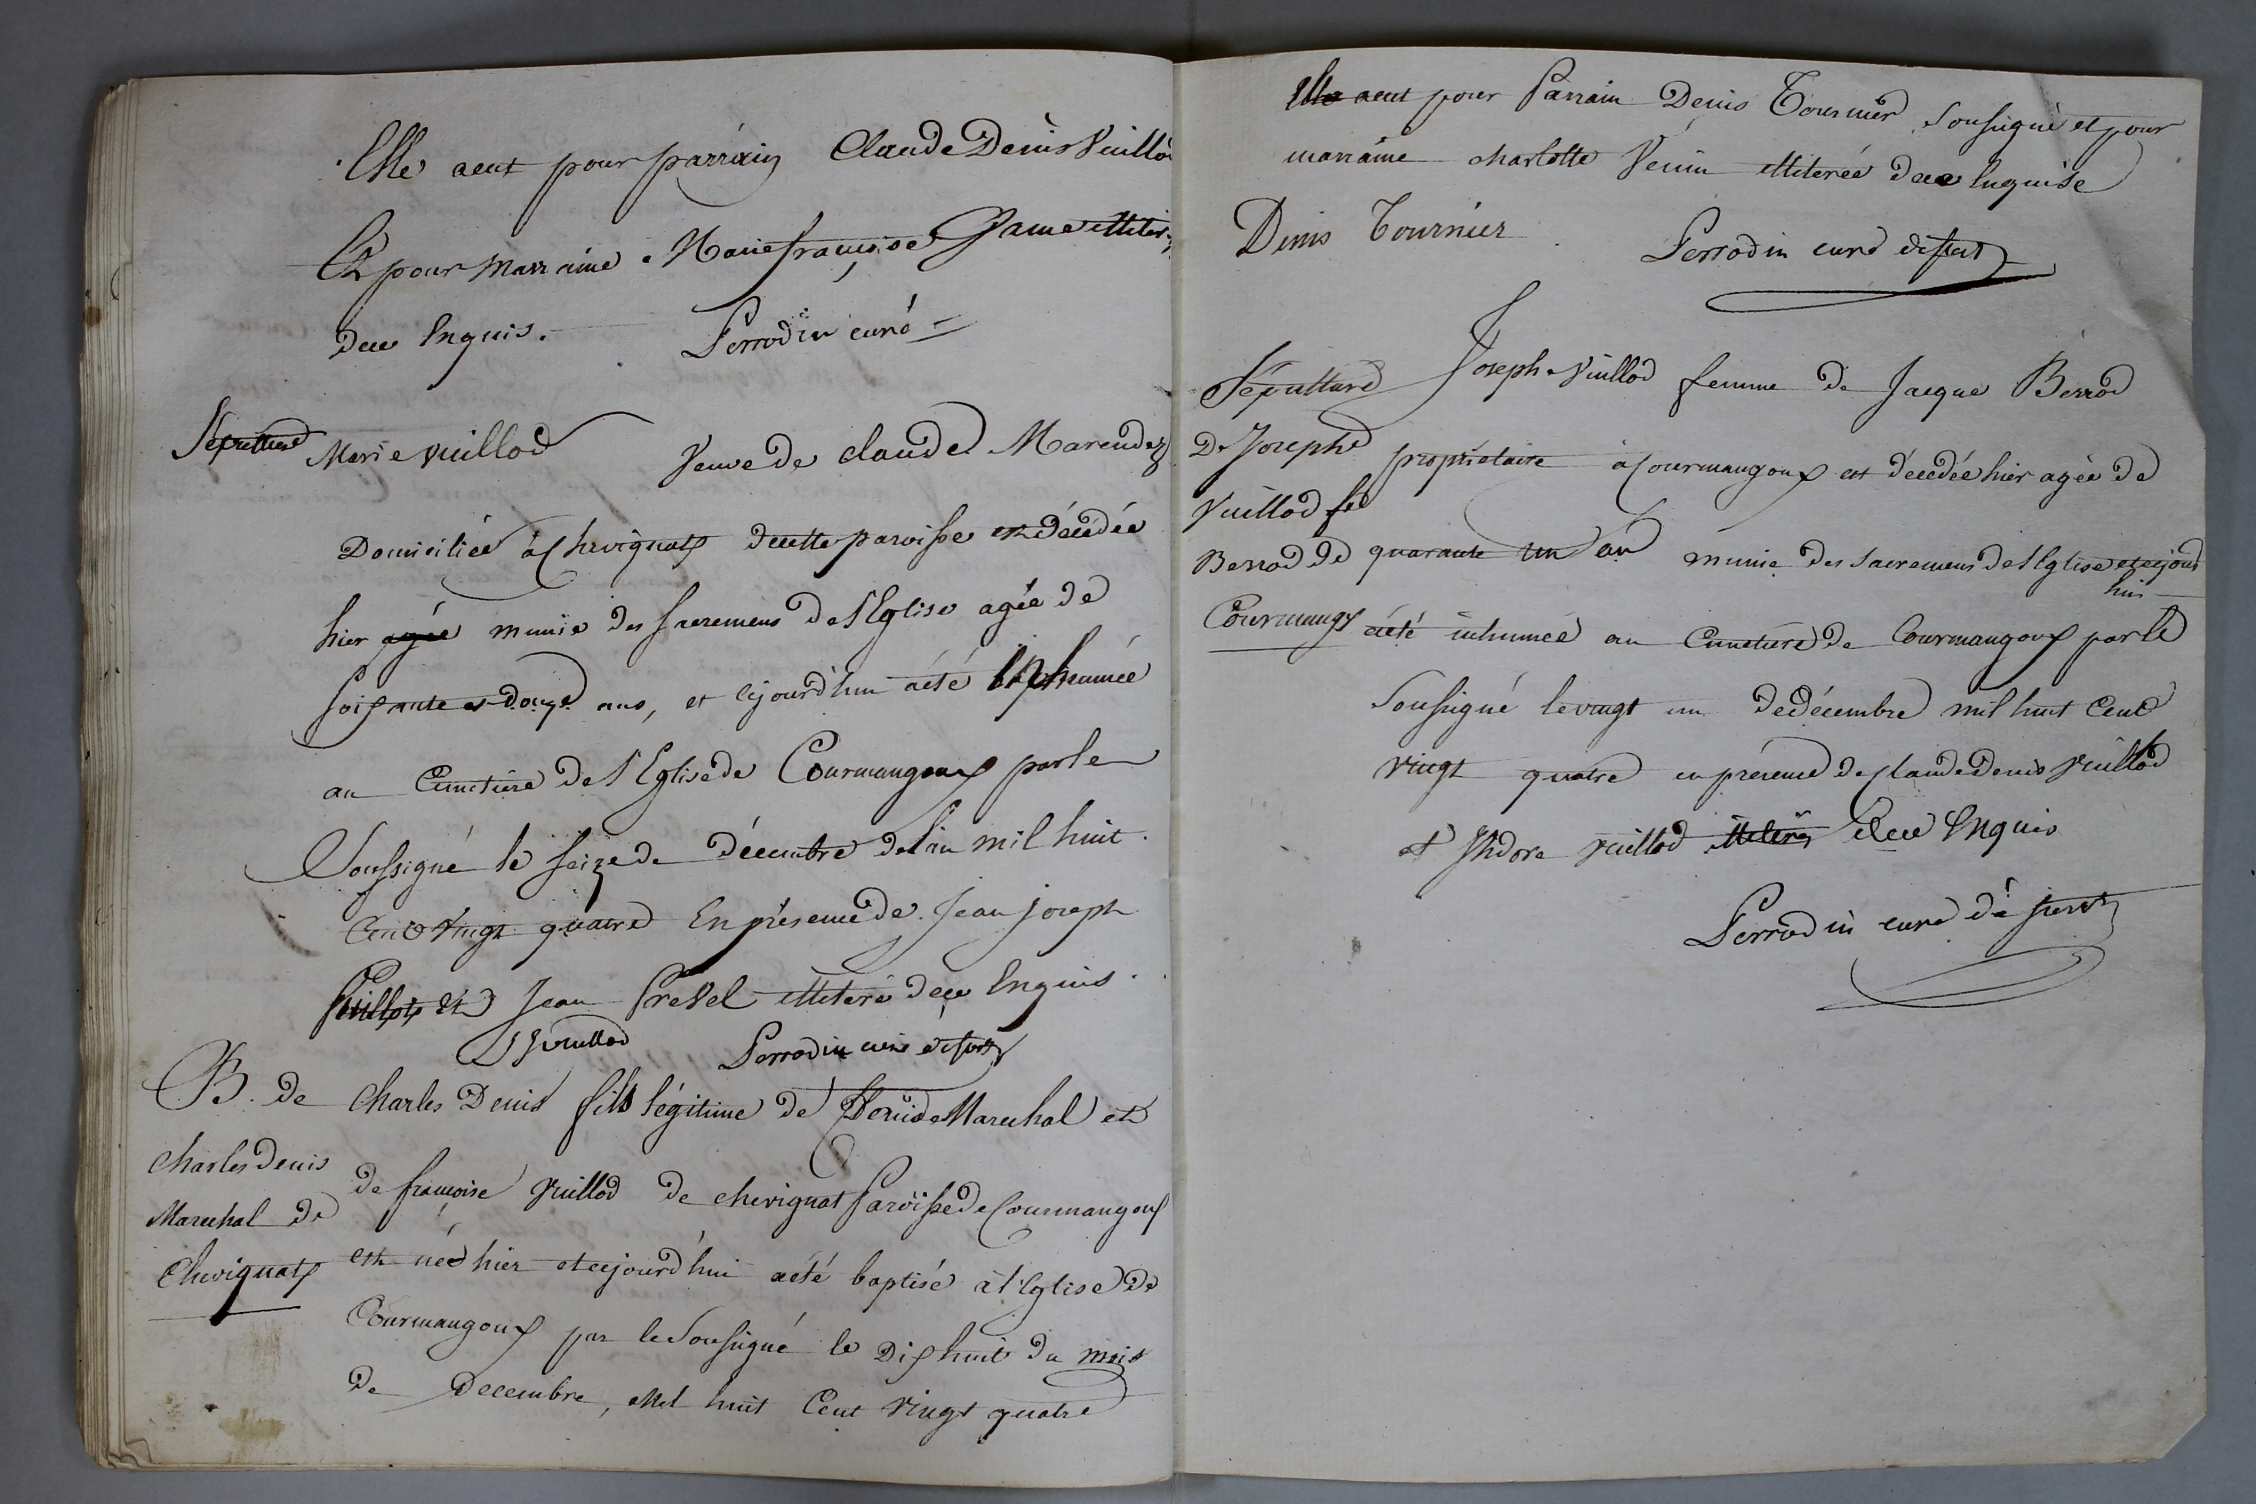 Elle aeut pour parrain Claude Denis Vuillod
Et pour marraine Marie françoise Jame illiter
dece Enquis. Perrodin curé
Sépulture Marie vuillod Veuve de claude Marendez
Domiciliée à Chevignat decette paroisse est décédée
hier agée munie des sacremens de l'Eglise agée de
soixante et douze ans, et cejourd'hui aété inhumée
au Cimetiere de l'Eglise de Courmangoux par le
Soussigné le seize de décembre del'an mil huit
Cent vingt quatre En présence de Jean joseph
Vuillot et Jean Prevel illiteré dece Enquis
JJ vuillod Perrodin curé desservt
B. de Charles Denis fils légitime de Denis Marechal et
charles denis de françoise Vuillod de chevignat Paroisse de Courmangoux
Marechal de
Chevignat est né hier et cejourd'hui aété baptisé à l'Eglise de
Courmangoux par le Soussigné le Dix huit du mois
de Decembre, Mil huit Cent vingt quatre
Elle aeut pour Parrain Denis Tournier soussigné et pour
marraine charlotte Venin illiterée dece Enquise
Denis Tournier Perrodin curé dessert
Sépulture Joseph Vuillod femme de Jacque Berrod
De Joseph propriétaire à Courmangoux est décédée hier agée de
Vuillod fe
Berrod de quarante un an munie des sacremens de l'Eglise et cejourd
hui
Courmangx aété inhumée au Cimetiere de Courmangoux par le
Soussigné le vingt un de décembre mil huit Cent
vingt quatre en présence de Claude Denis Vuillod
et Isidore vuillod illiterés dece Enquis
Perrodin curé désservt